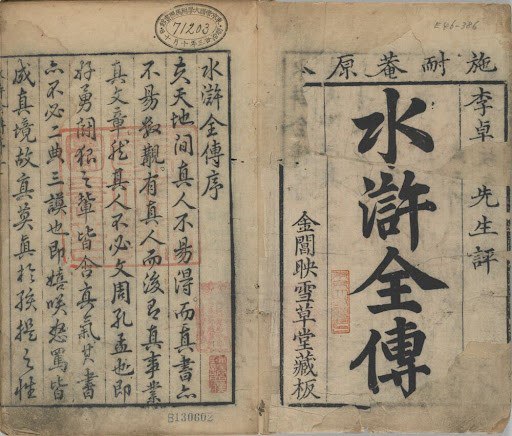 E86-386
施耐菴原
李卓 先生評
水滸全傳
金閶映雪草堂藏板
71203
水滸全傳序
夫天地間真人不易得而真書亦
不易數覯有真人而後有真事業
真文章然真人不必文周孔孟也即
好勇鬪狠之輩皆含真氣其書
亦不必二典三謨也即嬉咲怒罵皆
成真境故真莫真於孩提之性
B130602